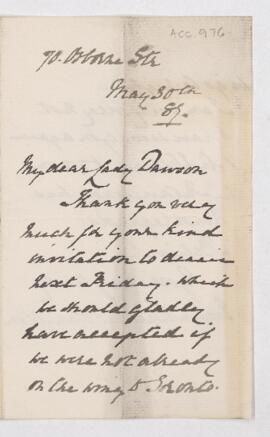 ACC. 976
70. Osborne Str
May 30th
85.
My dear Lady Dawson
Thank you very
much for your kind
invitation to dinner
next Friday. which
we should gladly
have accepted if
we were not already
on the way to Toronto.